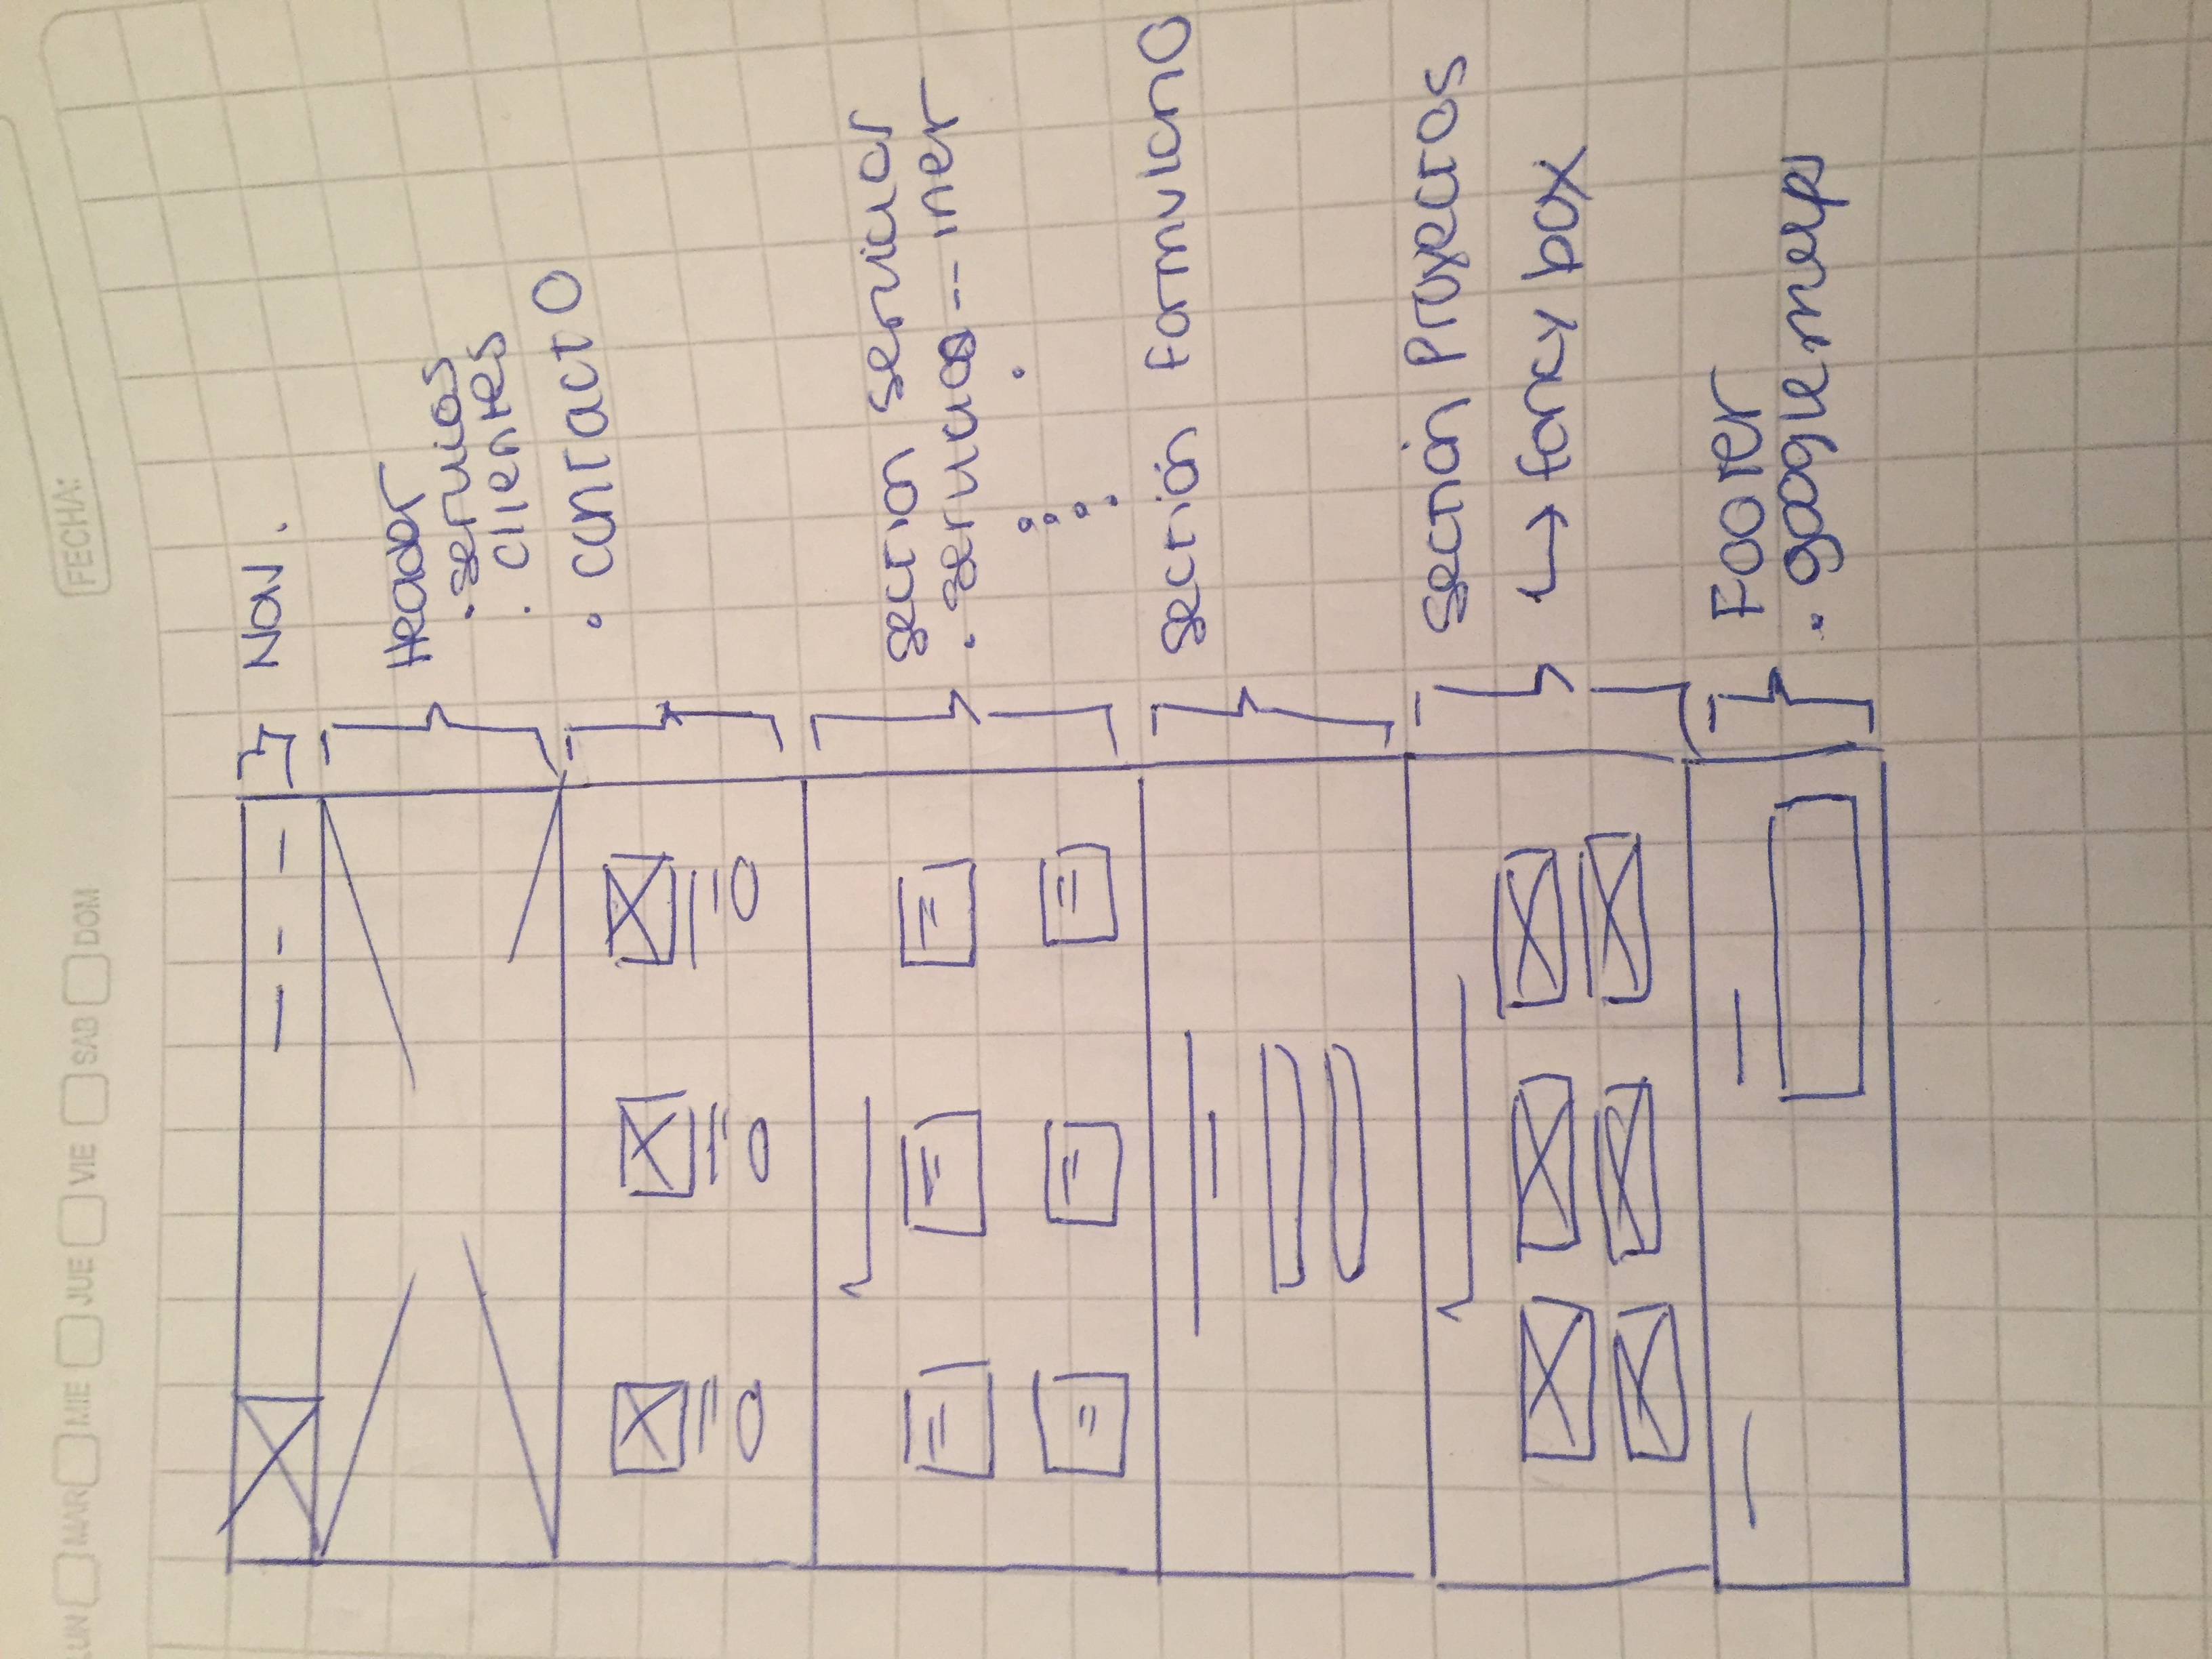 LUN MAR MIE JUE VIE SAB DOM
FECHA:
Nav.
Header
. servicios
. clientes
• contacto
section servicios
. servicios -- iner
sectión Formulario
sectión Proyectos
↳ fancy box
Footer
. google maps